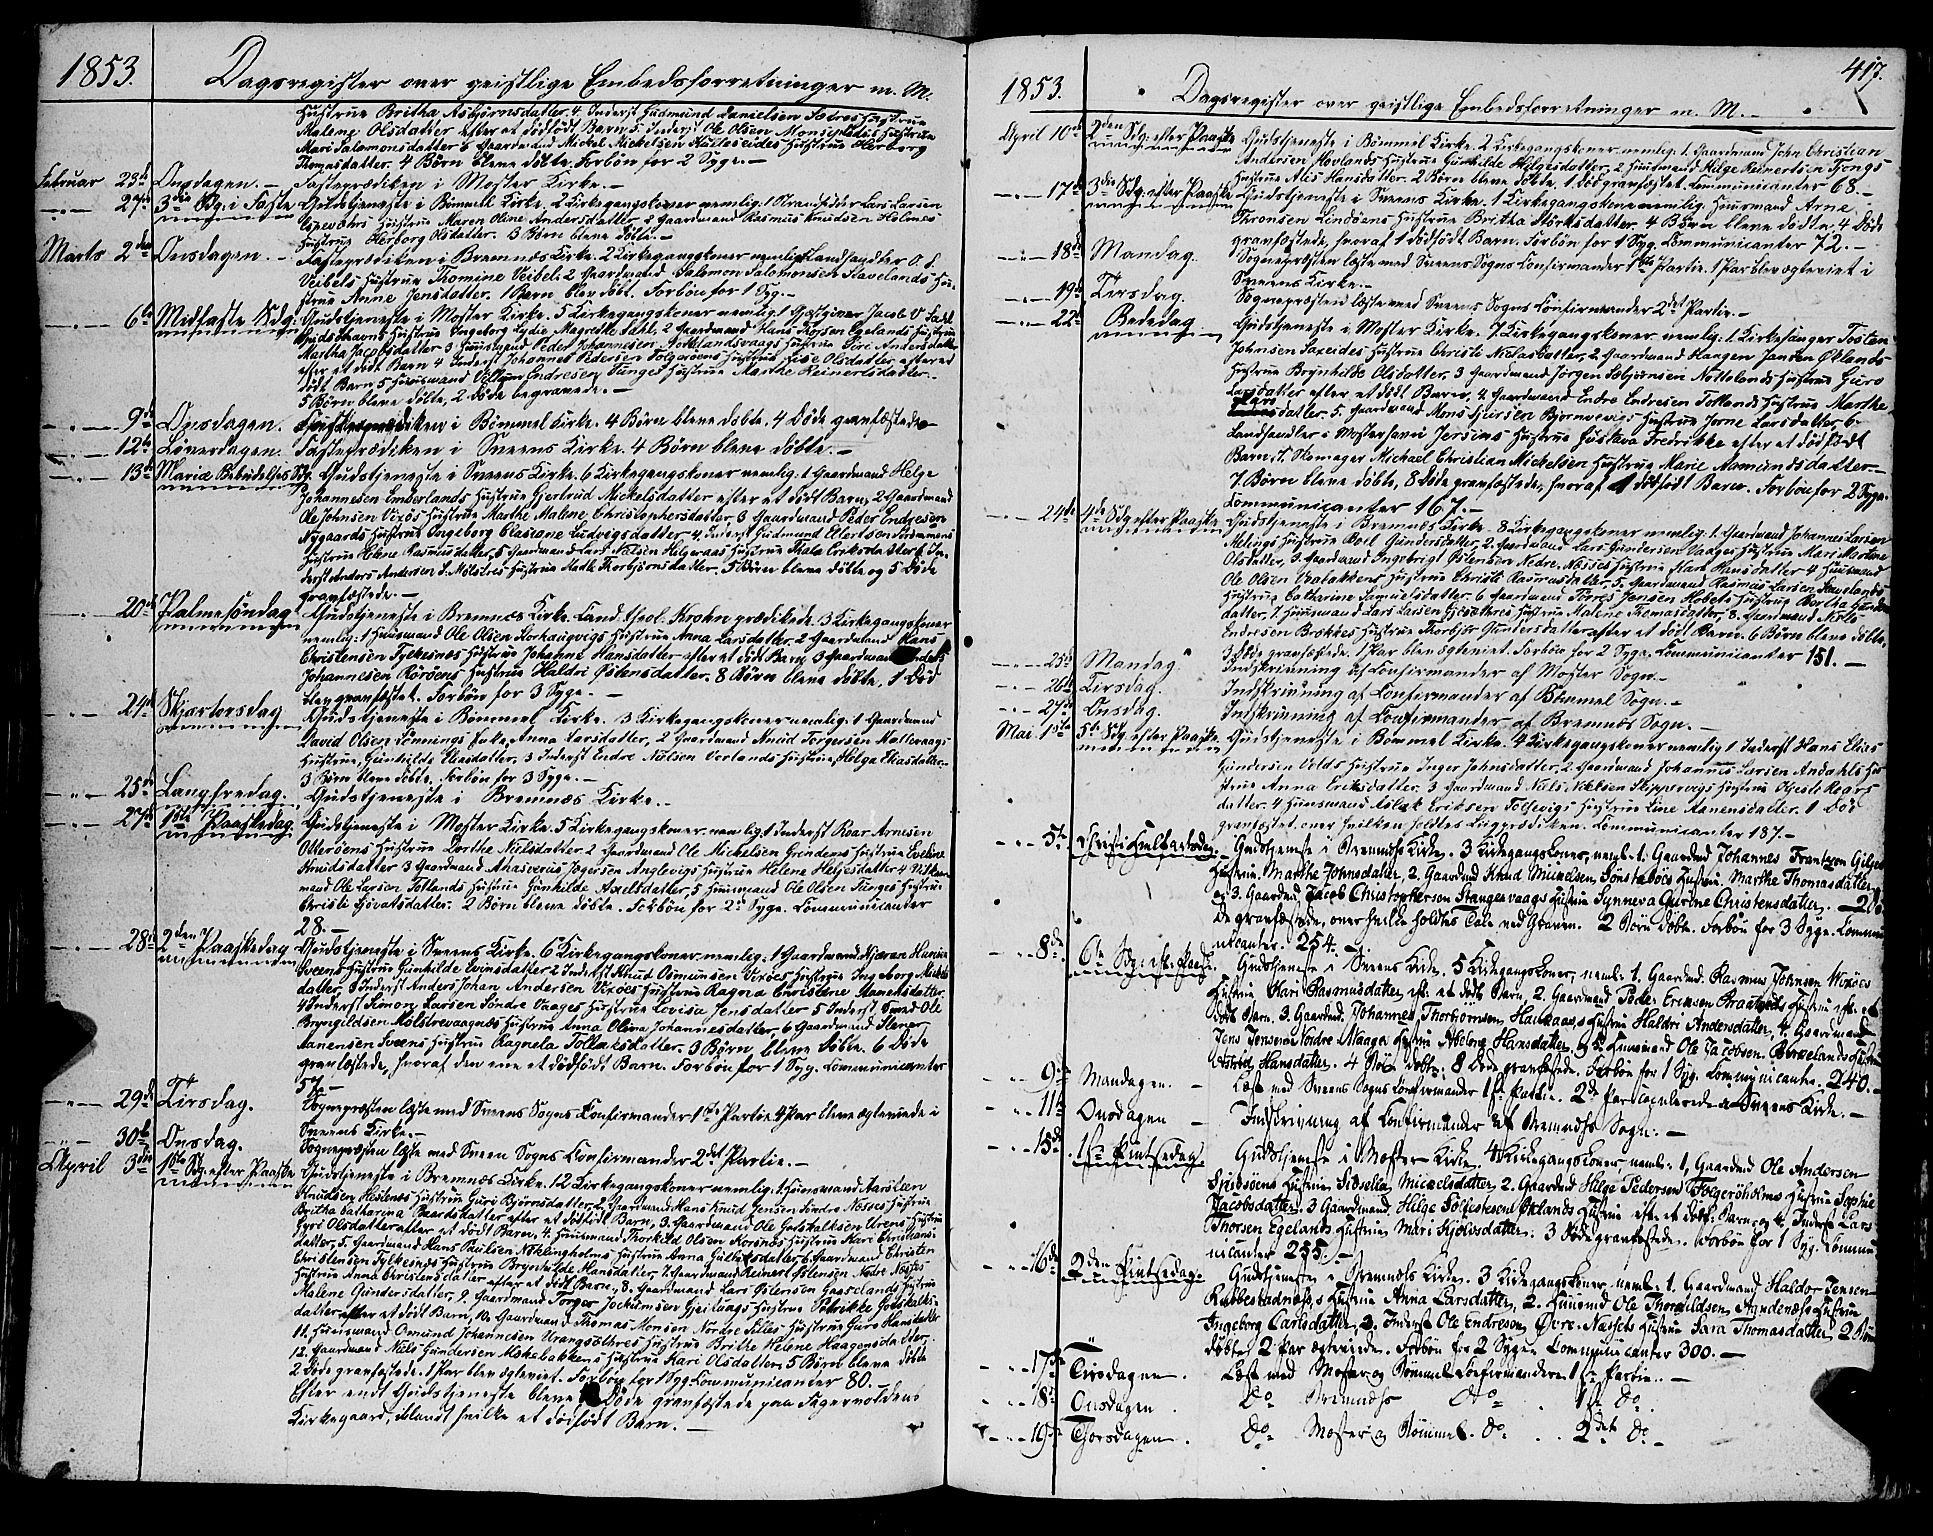 1853. Dagsregister over geistlige Embedsforretninger m. M.
Hustrue Britha Asbjørnsdatter. 4. Inderst Gudmund Danielsen Totres Hustrue
Malene Olsdatter efter et dødfødt Barn, 5. Inderst Ole Olsen Monsens Hustrue
Mari Salomonsdatter 6 Gaardmand Mickel Mickelsen Hustrue Herborg
Thomasdatter. 4 Børn bleve døbte. Forbøn for 2 Syge. —
Februar 23de Onsdagen. — Fasteprædiken i Moster Kirke. —
27de 3die Sdg. i Faste Gudstjeneste i Bømmel Kirke. 2 Kirkegangskoner nemlig: 1 Lars Larsen
Espevohrs Hustrue Maren Oline Andersdatter, 2 Gaardmand Rasmus Knudsen Holmes
Hustrue Herborg Olsdatter. 3 Børn bleve døbte. —
Marts 2den Onsdagen. — Fasteprædiken i Bremnes Kirke. 2 Kirkegangskoner nemlig: Landhandler O. S.
Veibels Hustrue Thomine Veibel. 2 Gaardmand Salomon Salomonsen Havelands Hu-
strue Anne Jensdatter. 1 Barn blev døbt. Forbøn for 1 Syg. —
6te Midfaste Sdg. Gudstjeneste i Moster Kirke. 5 Kirkegangskoner nemlig: 1 Gjestgiver Jacob V Dahl
Hustrue Ingeborg Lydie Magrethe Dahl, 2 Gaardmand Hans Thorsen Egelands Hustrue
Martha Jacobsdatter 3 Huusmand Peder Johannesen Hustrue Siri Andersdatter
efter et dødt Barn 4 Inderst Johannes Pedersen Folgerøens Hustrue Lise Olsdatter efter et
dødt Barn 5 Huusmand Villum Endresen Tunges Hustrue Marthe Reinertsdatter.
5 Børn bleve døbte, 2 Døde begravede. —
9de Onsdagen. Fasteprædiken i Bømmel Kirke. 4 Børn bleve døbte. 4 Døde gravfæstede
12te Løverdagen. Fasteprædiken i Sveens Kirke. 4 Børn bleve døbte. —
13de Mariæ Bebudelses Sdg. Gudstjeneste i Sveens Kirke. 6 Kirkegangskoner nemlig: 1 Gaardmand Helge
Johannesen Emberlands Hustrue Gjertrud Mickelsdatter efter et dødt Barn, 2 Gaardmand
Ole Johnsen Vixøs Hustrue Marthe Malene Christophersdatter, 3 Gaardmand Peder Endresen
Nygaards Hustrue Ingeborg Elasiane Ludvigsdatter, 4 Inderst Gudmund Ellertsen
Hustrue Helene Rasmusdatter, 5 Gaardmand Lars Nielsen Helgeraas Hustrue Thala Eriksdatter 6 In-
derst Anders Andersen S. Mølstres Hustrue Madle Thorbjørnsdatter. 5 Børn bleve døbte og 5 Døde
gravfæstede. —
20de Palmesøndag Gudstjeneste i Bremnes Kirke. Cand. theol. Krohn prædikede. 3 Kirkegangskoner
nemlig: 1 Huusmand Ole Olsen Hustrue Anna Larsdatter, 2 Gaardmand Hans
Christensen Fylkesnes Hustrue Johanne Hansdatter efter et dødt Barn, 3 Gaardmand
Johannesen Rørøens Hustrue Haldri Østensdatter. 8 Børn bleve døbte, 1 Død
blev gravfæstet. Forbøn for 3 Syge. —
24de Skjærtorsdag Gudstjeneste i Bømmel Kirke. 3 Kirkegangskoner nemlig: 1 Gaardmand
David Olsen Sønnings Enke Anna Larsdatter, 2 Gaardmand Knud Torgersen Mallevaags
Hustrue, Gunhilde Elensdatter, 3 Inderst Endre Nilsen Vorlands Hustrue, Helga Eliasdatter.
3 Børn bleve døbte. Forbøn for 3 Syge. —
25de Langfredag. Gudstjeneste i Bremnæs Kirke. —
27de 1ste Paaskedag. Gudstjeneste i Moster Kirke. 5 Kirkegangskoner nemlig: 1 Inderst Roar Arnesen
Otterøens Hustrue Dorthe Nielsdatter 2 Gaardmand Ole Mickelsen Grindems Hustrue Eveline
Knudsdatter 3 Gaardmand Anasverus Jogersen Anglevigs Hustrue Helene Helgesdatter 4
mand Ole Larsen Totlands Hustrue Gunhilde Axelsdatter, 5 Huusmand Ole Olsen Tunges Hustrue
Christi Sjovatsdatter. 2 Børn bleve døbte. Forbøn for 2de Syge. Communicanter
28. —
28de 2den Paaskedag Gudstjeneste i Sveens Kirke. 6 Kirkegangskoner nemlig: 1 Gaardmand Kjæran Hansen
Sveens Hustrue Gunhilde Evinsdatter 2 Inderst Knud Osmunsen Vixøes Hustrue Ingeborg Mickels
datter, 3 Inderst Anders Johan Andersen Vixøes Hustrue Ragna Christine Aamensdatter
4 Inderst Simon Larsen Søndre Vaages Hustrue Lovisa Jensdatter 5 Inderst Svend Ole
Bryngildsen Mølstrevaagnes Hustrue Anna Olina Johannesdatter, 6 Gaardmand Stener
Aanensen Sveens Hustrue Ragnela Tollaksdatter. 3 Børn bleve døbte. 6 Døde
gravfæstede, hvoraf den ene et dødfødt Barn. Forbøn for 1 Syg. Communicanter
57. —
29de Tirsdag. Sognepræsten læste med Sveens Sogns Confirmander 1ste Partie. 4 Par bleve ægteviede i
Sveens Kirke. —
30te Onsdag. Sognepræsten læste med Sveen Sogns Confirmander 2det Partie. —
April 3die 1ste Sdg. efter Paaske Gudstjeneste i Bremnæs Kirke. 12 Kirkegangskoner nemlig: 1 Huusmand Aarsteen
Knudsen Hustrue Guri Bjørnsdatter, 2 Gaardmand Hans Knud Jensen Søndre Nøsses Hustrue
Britha Catharina Baardsdatter efter et dødfødt Barn, 3. Gaardmand Ole Gotskalksen Urens Hustrue
Eyri Olsdatter efter et dødt Barn, 4. Huusmand Thorkild Olsen Korsnes Hustrue Kari Christians-
datter, 5. Gaardmand Hans Paulsen Hustrue Anna Gulliksdatter, 6. Gaardmand Christen
Christensen Fylkesnes Hustrue Brynhilde Hansdatter, 7 Gaardmand Reinert Østensen Nedre Nøsses
Hustrue Anna Christensdatter efter et dødt Barn, 8. Gaardmand Lars Østensen Gaaselands Hustrue
Malene Gundersdatter, 9. Gaardmand Torger Jochumsen Gjeitungs Hustrue Petrikke Gotskalks-
datter efter et dødt Barn, 10. Gaardmand Thomas Monsen Nordre Selles Hustrue Guro Hansdatter
11. Huusmand Osmund Johannesen Vrangsæthres Hustrue Brithe Helene Haagensdatter.
12. Gaardmand Niels Gundersen Hustrue Kari Olsdatter. 5 Børn bleve døbte
2 Døde gravfæstede. 1 Par blev ægteviet. Forbøn for 1 Syg. Communicanter 80. —
Efter endt Gudstjeneste bleve Døde gravfæstede paa Fagervoldens
Kirkegaard, iblandt hvilke et dødfødt Barn. —
417.
1853. Dagsregister over geistlige Embedsforretninger m. M. —
April 10de 2den Sdg. efter Paaske Gudstjeneste i Bømmel Kirke. 2 Kirkegangskoner nemlig: 1. Gaardmand John Christian
Andersen Hovlands Hustrue Gunhilde Helgesdatter, 2. Huusmand Helge Reinertsen Tjongs
Hustrue Alis Hansdatter. 2 Børn bleve døbte. 1 Død gravfæstet. Communicanter 68. —
17de 3die Sdg. efter Paaske Gudstjeneste i Sveens Kirke. 1 Kirkegangskone nemlig. Huusmand Arne
Thronsen Lindøens Hustrue Britha Størksdatter. 4 Børn bleve døbte. 4 Døde
gravfæstede, hvoraf 1 dødfødt Barn. Forbøn for 1 Syg. Communicanter 72. —
18de Mandag. Sognepræsten læste med Sveens Sogns Confirmander 1ste Partie. 1 Par blev ægteviet i
Sveens Kirke. —
19de Tirsdag. Sognepræsten læste med Sveens Sogns Confirmander 2det Partie. —
22de Bededag Gudstjeneste i Moster Kirke. 7 Kirkegangskoner nemlig: 1. Kirkesanger Tosten
Johnsen Laxeides Hustrue Christi Niclasdatter, 2. Gaardmand Haagen Jansen Øklands
Hustrue Brynhilde Olsdatter, 3 Gaardmand Jørgen Sæbjørnsen Nottelands Hustrue Guro
Larsdatter efter et dødt Barn, 4. Gaardmand Endre Endresen Totlands Hustrue Marthe
Larsdatter, 5. Gaardmand Mons Sjursen Bjørnevigs Hustrue Jorne Larsdatter 6.
Landhandler i Mosterhavn Jersins Hustrue Gustava Fredrikke efter et dødfødt
Barn, 7. Skomager Michael Christian Mickelsen Hustrue Marie Aamundsdatter.—
7 Børn bleve døbte, 8 Døde gravfæstede, hvoraf 1 dødfødt Barn. Forbøn for 2 Syge.
Communicanter 167. —
24de 4de Sdg. efter Paaske Gudstjeneste i Bremnes Kirke. 8 Kirkegangskoner nemlig: 1. Gaardmand Johannes Larsen
Melings Hustrue Boel Gundersdatter, 2. Gaardmand Lars Gundersen Vaages Hustrue Mari Martine
Olsdatter, 3. Gaardmand Ingebrigt Østensen Nedre Nøsses Hustrue Mari Hansdatter 4 Huusmand
Ole Olsen Hustrue Christi Rasmusdatter. 5. Gaardmand Rasmus Larsen Havelands
Hustrue Catharine Samuelsdatter. 6 Gaardmand Tørres Jensen Hobets Hustrue Bertha Gunder
datter, 7. Huusmand Lars Larsen Hustrue Malene Thomasdatter, 8. Gaardmand Niels
Endresen Brekkes Hustrue Thorbjør Gundersdatter efter et dødt Barn. 6 Børn bleve døbte,
3 Døde gravfæstede. 1 Par blev ægteviet. Forbøn for 2 Syge. Communicanter 151. —
25de Mandag. Indskrivning af Confirmander af Moster Sogn. —
26de Tirsdag. Indskrivning af Confirmander af Bømmel Sogn. —
27de Onsdag. Indskrivning af Confirmander af Bremnæs Sogn. —
Mai. 1ste 5te Sdg. efter Paaske Gudstjeneste i Bømmel Kirke. 4 Kirkegangskoner nemlig 1 Inderst Hans Elias
Gundersen Velds Hustrue Inger Johnsdatter, 2. Gaardmand Johannes Larsen Andahls Hu-
strue Anna Eriksdatter. 3 Gaardmand Niels Nielsen Skippervigs Hustrue Roars
datter. 4 Huusmand Aslak Eriksen Tollevigs Hustrue Line Aanensdatter. 1 Død
gravfæstet, over hvilken holdtes Liigprædiken. Communicanter 187. —
5te Christi Himmelfartsdag. Gudstjeneste i Bremnæs Kirke. 3 Kirkegangskoner, neml: 1. Gaardmd Johannes Frantzen Gilje
Hustrue Marthe Johnsdatter, 2. Gaardmand Knud Mickelsen Sønstabøes Hustrue Marthe Thomasdatter,
og 3. Gaardmd Jacob Christophersen Stangervaags Hustrue Synneva Gurine Christensdatter. — 2
Døde gravfæstede, over hvilke holdtes Tale ved Graven. 2 Børn døbte. Forbøn for 3 Syge. Commu
nicanter. 254. —
8de 6te Sdg: eft. Paaske Gudstjeneste i Sveens Kirke. 5 Kirkegangskoner, neml: 1. Gaardmd. Rasmus Johnsen Wixøes
Hustrue Kari Rasmusdatter eft. et dødt Barn, 2. Gaardmand Peder Eriksen Hustrue eft. et
dødt Barn. 3. Gaardmd. Johannes Thorbjørnsen Haukaas, Hustrue Haldri Andersdatter, 4. Gaardmand
Jens Jensen Nordre Waages Hustrue Aleborg Hansdatter, og 5. Huusmand Ole Jacobsen Hustrue
Astrid Hansdatter. 4 Børn døbte. 8 Døde gravfæstede. Forbøn for 1 Syg. Communicanter. 240. —
9de Mandagen. — Læst med Sveens Sogns Confirmander 1ste Partie. 2de Par copulerede i Sveens Kirke. —
11te Onsdagen — Indskrivning af Confirmander af Bremnæs Sogn. —
15de 1ste Pintsedag. Gudstjeneste i Moster Kirke. 4 Kirkegangskoner, neml: 1. Gaardmd Ole Andersen
Spidsøens Hustrue Sibsella Mickelsdatter, 2. Gaardmd Helge Pedersen Folgerøholms Hustrue Sophie
Jacobsdatter, 3 Gaardmand Helge Solfestesen Øklands Hustrue eft. et dødt Barn, og 4. Inderst Lars
Thorsen Egelands Hustrue Mari Kjolvsdatter. 3 Døde gravfæstede. Forbøn for 1 Syg. Commu
nicanter 255. —
16de 2den Pintsedag. Gudstjeneste i Bremnæs Kirke. 3 Kirkegangskoner, neml: 1. Gaardmand Haldor Jensen
Rubbestadnæss, Hustrue Anna Larsdatter, 2. Huusmd Ole Thorkildsen, Agndenæss Hustrue
Ingeborg Carlsdatter, 3. Inderst Ole Endresen, Øvre-Næssets Hustrue Sara Thomasdatter. 2 Børn
døbte, 2 Par ægteviede. Forbøn for 2 Syge. Communicanter 300. —
17de Tirsdagen. Læst med Moster og Bømmel Confirmandere 1ste Partie. —
18de Onsdagen. Do Bremnæs Do 1ste Do.
19de Thorsdagen. Do Moster og Bømmel. Do 2det Do. —